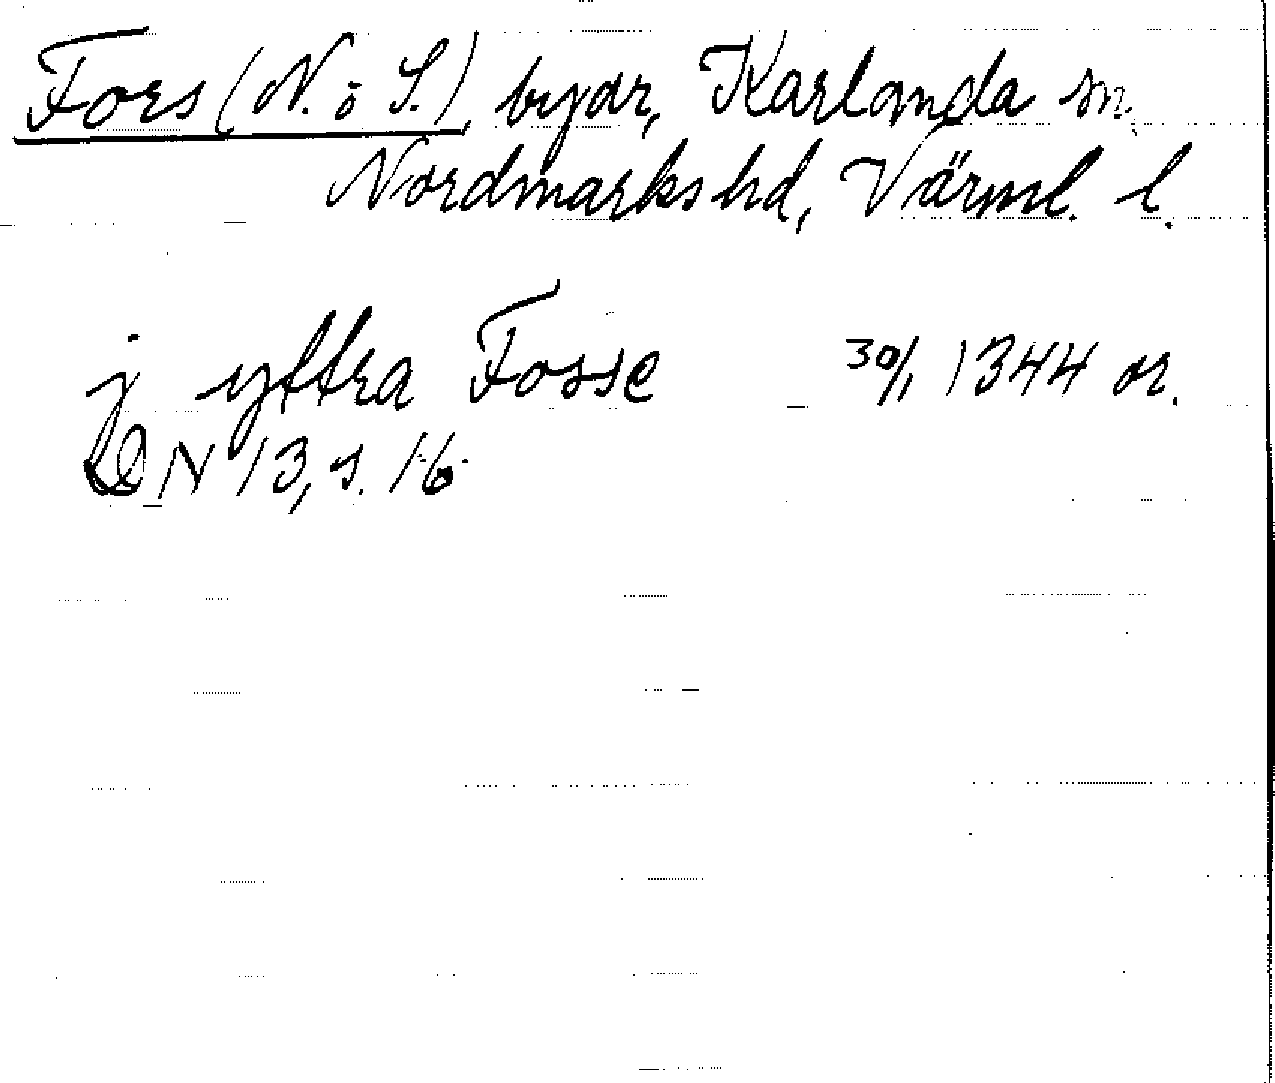 Fors (N. o S.), byar, Karlanda sn,
Nordmarks hd, Värml. l.
j yttra Fosse 30/1 1344 or.
DN 13, s. 16